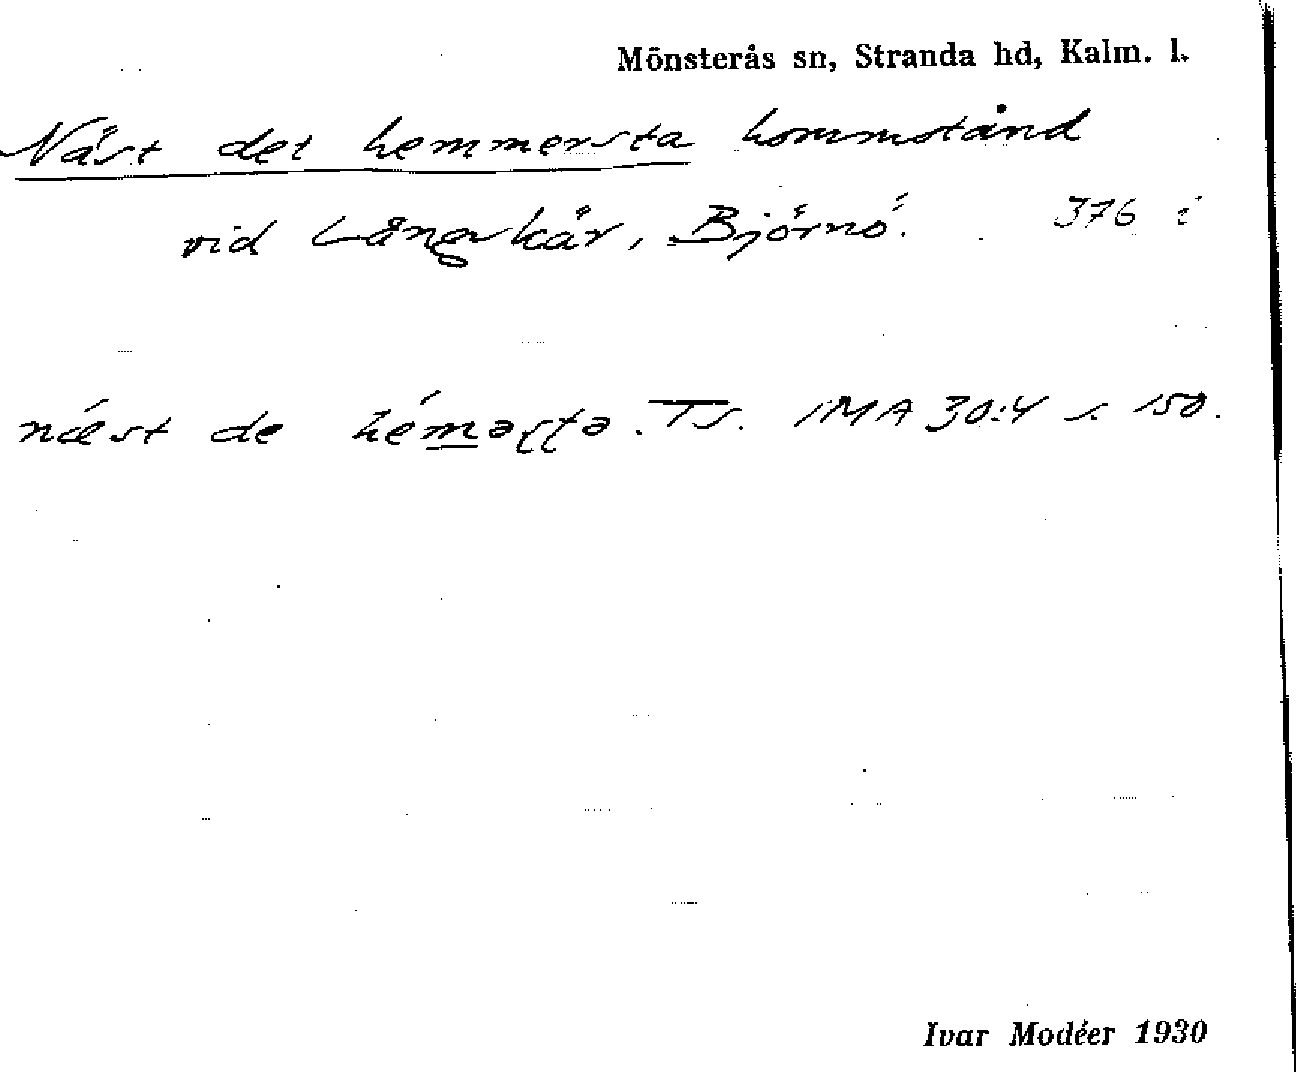 Mönsterås sn, Stranda hd, Kalm. l.
Näst det hemmersta kommstånd
vid Långskär, Björnö. 376 i
næst de hémǝʂʈǝ. TS. IMA 30:4 s. 150.
Ivar Modéer 1930